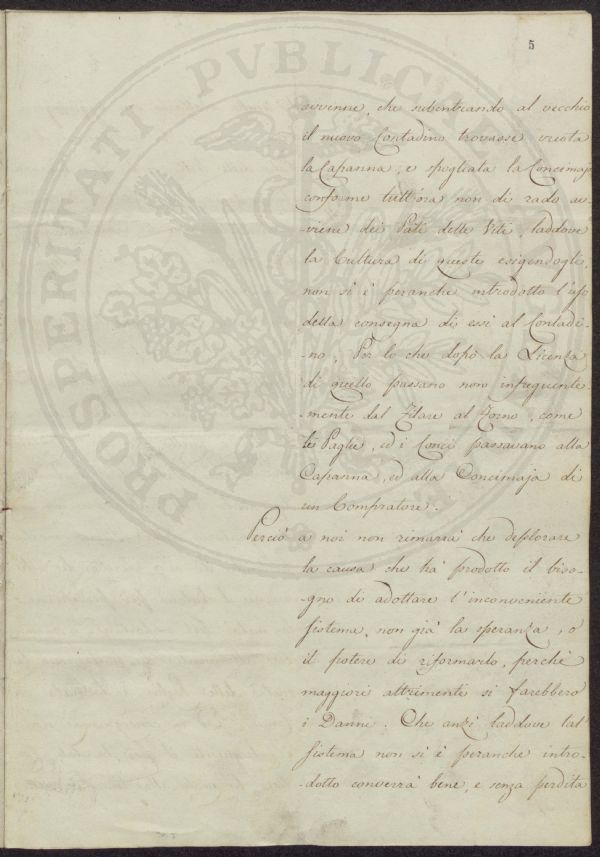 5
PROSPERITATI PVBLICAE
avvenne, che subentrando al vecchio
il nuovo Contadino trovasse vuota
la Capanna, e spogliata la Concimaja
conforme tutt'ora non di rado av-
-viene dei Pali delle Viti, laddove
la Cultura di queste esigendogli,
non si è peranche introdotto l'uso
della consegna di essi al Contadi-
-no, Per lo che dopo la Licenza
di quello passano non infrequente-
-mente dal Filare al Forno, come
le Paglie, ed i Conci passavano alla
Capanna, ed alla Concimaja di
un Compratore.
Perciò a noi non rimarrà che deplorare
la causa che ha prodotto il biso-
-gno di adottare l'inconveniente
sistema, non già la speranza, o
il potere di riformarlo, perchè
maggiori altrimenti si farebbero
i Danni. Che anzi laddove tal
sistema non si è peranche intro-
-dotto converrà bene, e senza perdita